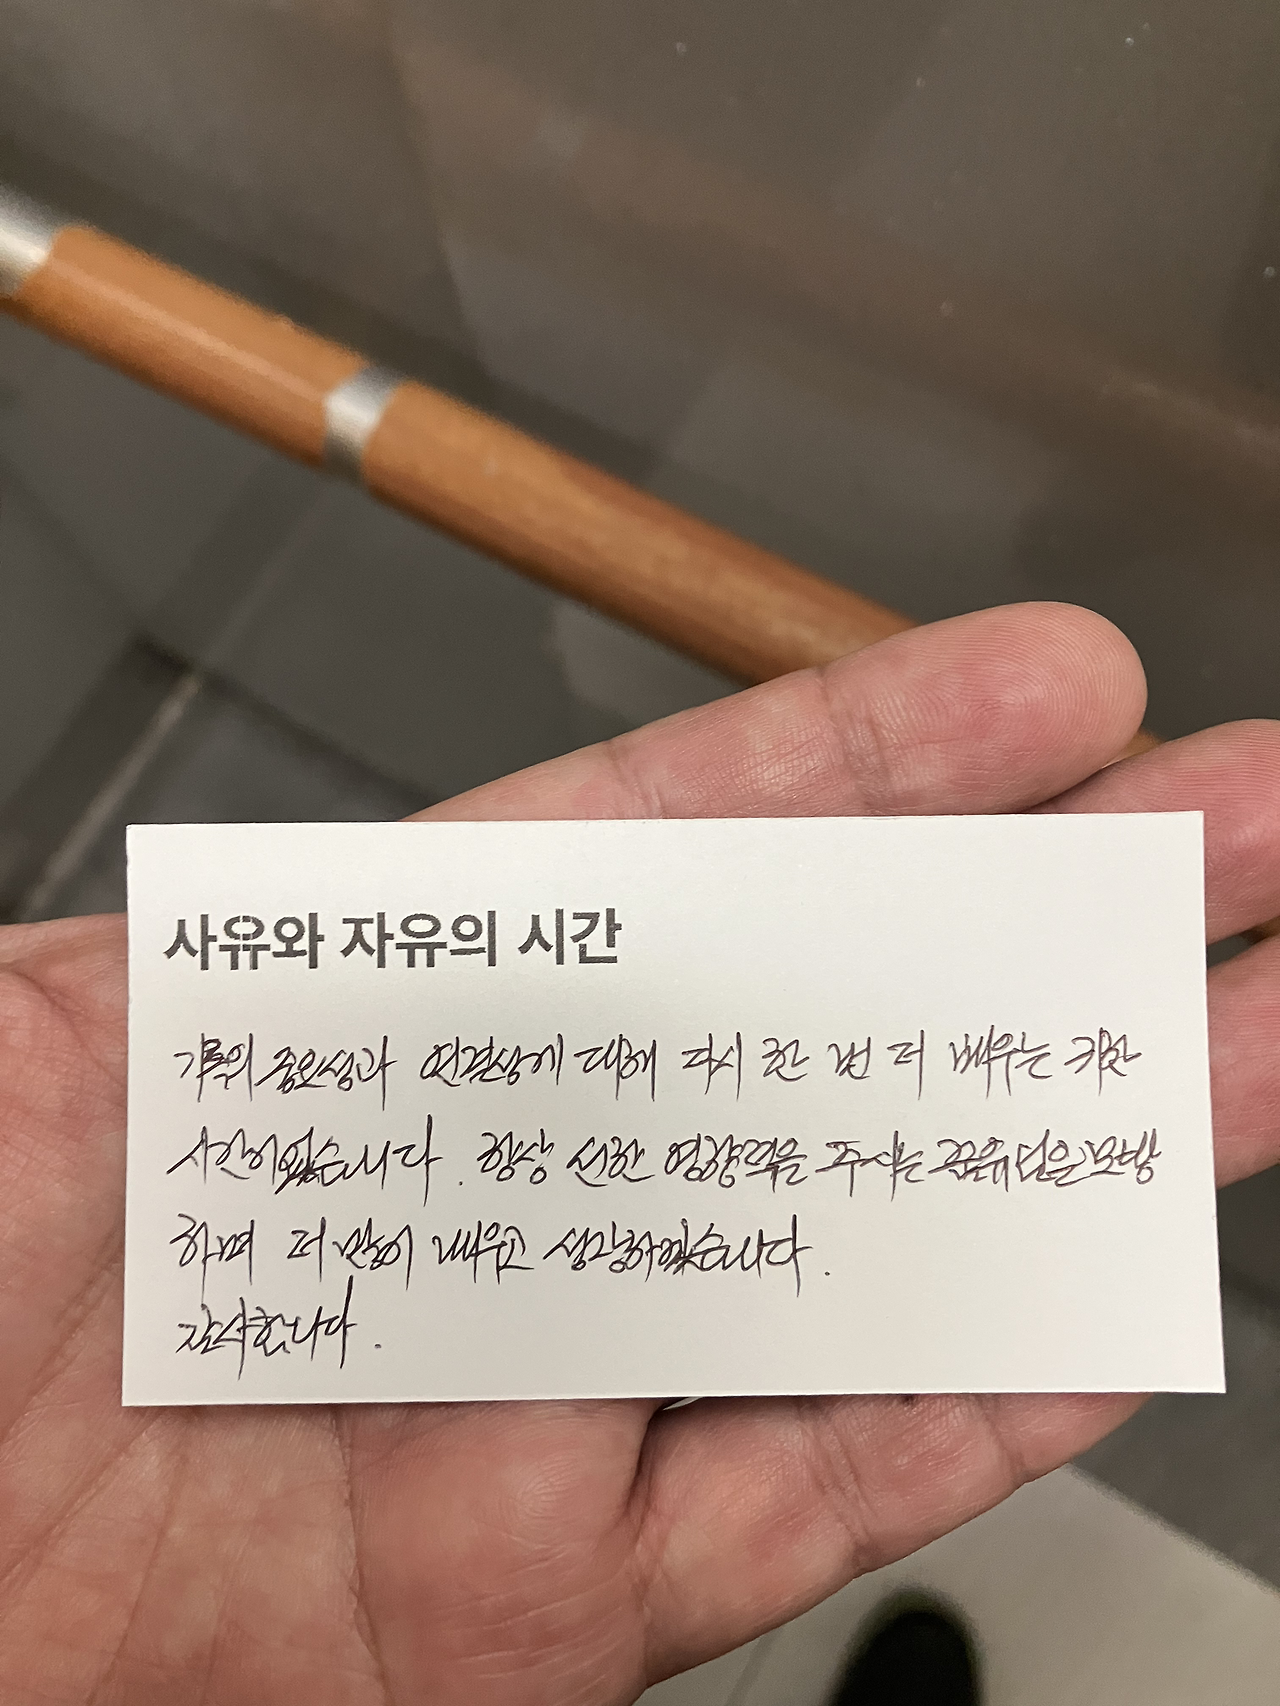 사유와 자유의 시간
기록의 중요성과 연결성에 대해 다시 한 번 더 배우는 귀한
시간이었습니다. 항상 선한 영향력을 주시는 모방
하며 더 많이 배우고 성장하겠습니다.
감사합니다.